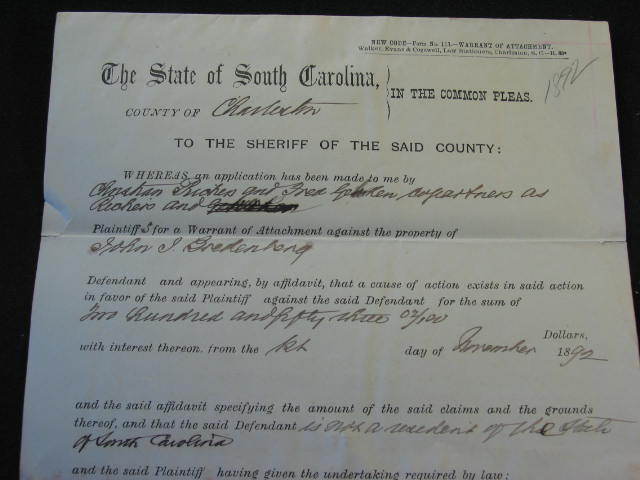 NEW CODE—Form No. 111.—WARRANT OF ATTACHMENT.
Walker, Evans & Cogswell, Law Stationers, Charleston, S. C.
1892
The State of South Carolina,
IN THE COMMON PLEAS.
COUNTY OF Charleston
TO THE SHERIFF OF THE SAID COUNTY:
WHEREAS, an application has been made to me by
Christian and Fred copartners as
and
Plaintiffs for a Warrant of Attachment against the property of
John
Defendant and appearing, by affidavit, that a cause of action exists in said action
in favor of the said Plaintiff against the said Defendant for the sum of
Two Hundred and fifty three /100
Dollars,
with interest thereon, from the 1st day of November 1892
and the said affidavit specifying the amount of the said claims and the grounds
thereof, and that the said Defendant is not a resident of the State
of South Carolina
and the said Plaintiff having given the undertaking required by law: